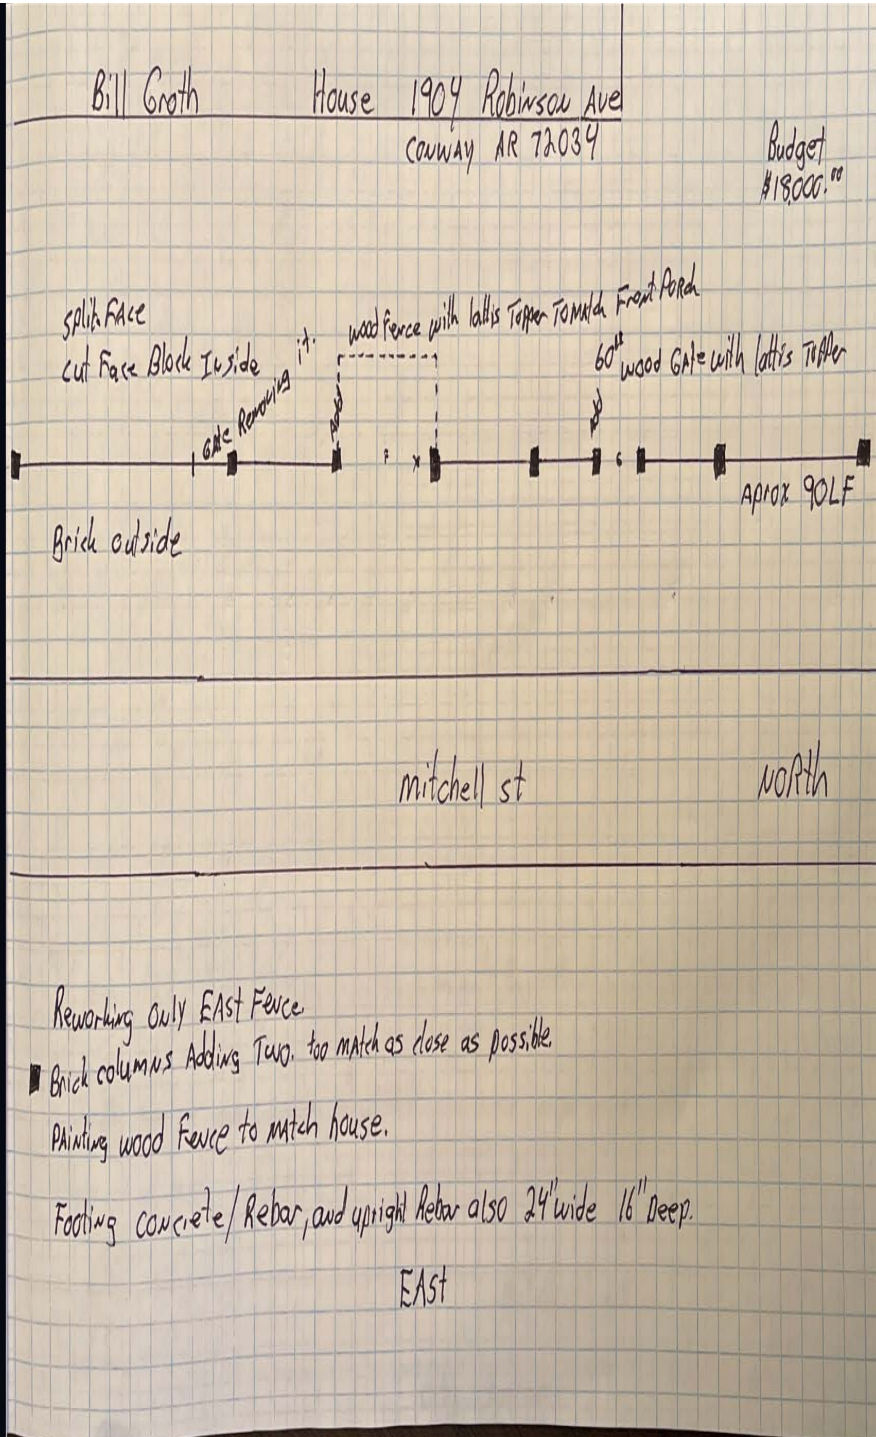 Bill Groth House 1904 Robinson Ave
CONWAY AR 72034
Budget
$18,000.00
split FACE
cut Face Block Inside
GAte Removing it.
wood fence with lattis Topper TO MAtch Front PORch
60" wood GAte with lattis TOPPer
Add
Add
G
Aprox 90LF
Brick outside
mitchell st
NORth
Reworking only EAst Fence
Brick columns Adding Two. too mAtch as close as possible.
PAinting wood fence to mAtch house.
Footing concrete/Rebar, and upright Rebar also 24" wide 16" Deep.
EAst